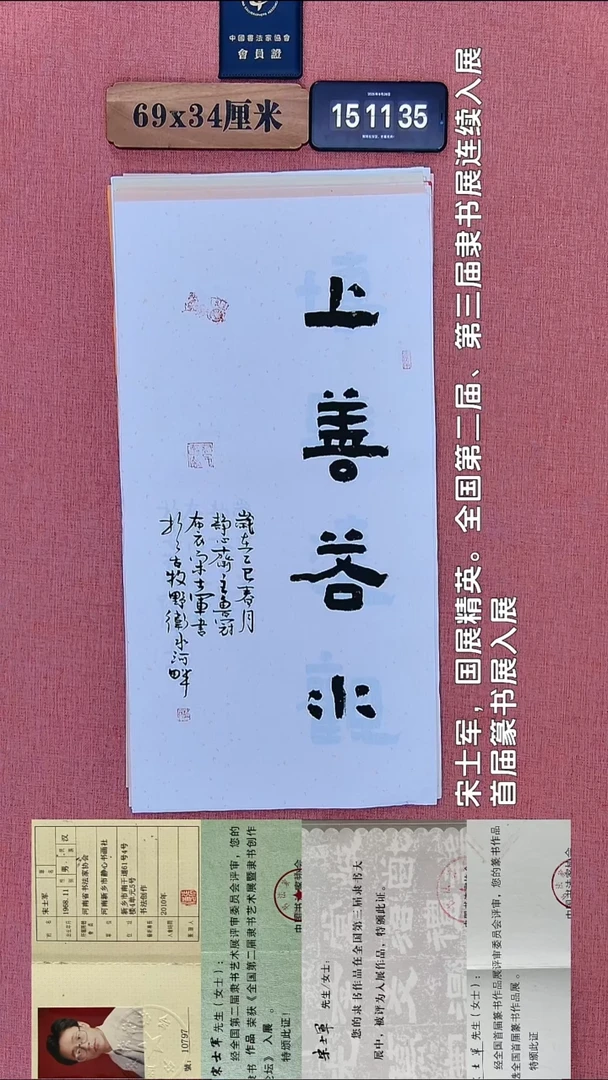 中國書法家協會
會員證
69x34厘米
15 11 35
上善若水
歲在乙巳春月
静心齋主青冠
布衣宋士軍書
於古牧野衛水河畔
宋士军，国展精英。全国第二届、第三届隶书展连续入展
首届篆书展入展
宋士军
男
汉
1968.11
河南省书法家协会
河南新乡市静心书画社
新乡市南干道61号4号
楼4单元5号
书法创作
2010年
號：10797
宋士军 先生（女士）：
经全国第二届隶书艺术展评审委员会评审，您的
隶书 作品 荣获《全国第二届隶书艺术展暨隶书创作
论坛》入展。
特颁此证！
宋士军 先生/女士：
您的隶书作品在全国第三届隶书大
展中，被评为入展作品，特颁此证。
士军 先生（女士）：
经全国首届篆书作品展评审委员会评审，您的篆书作品
选全国首届篆书作品展。
特颁此证